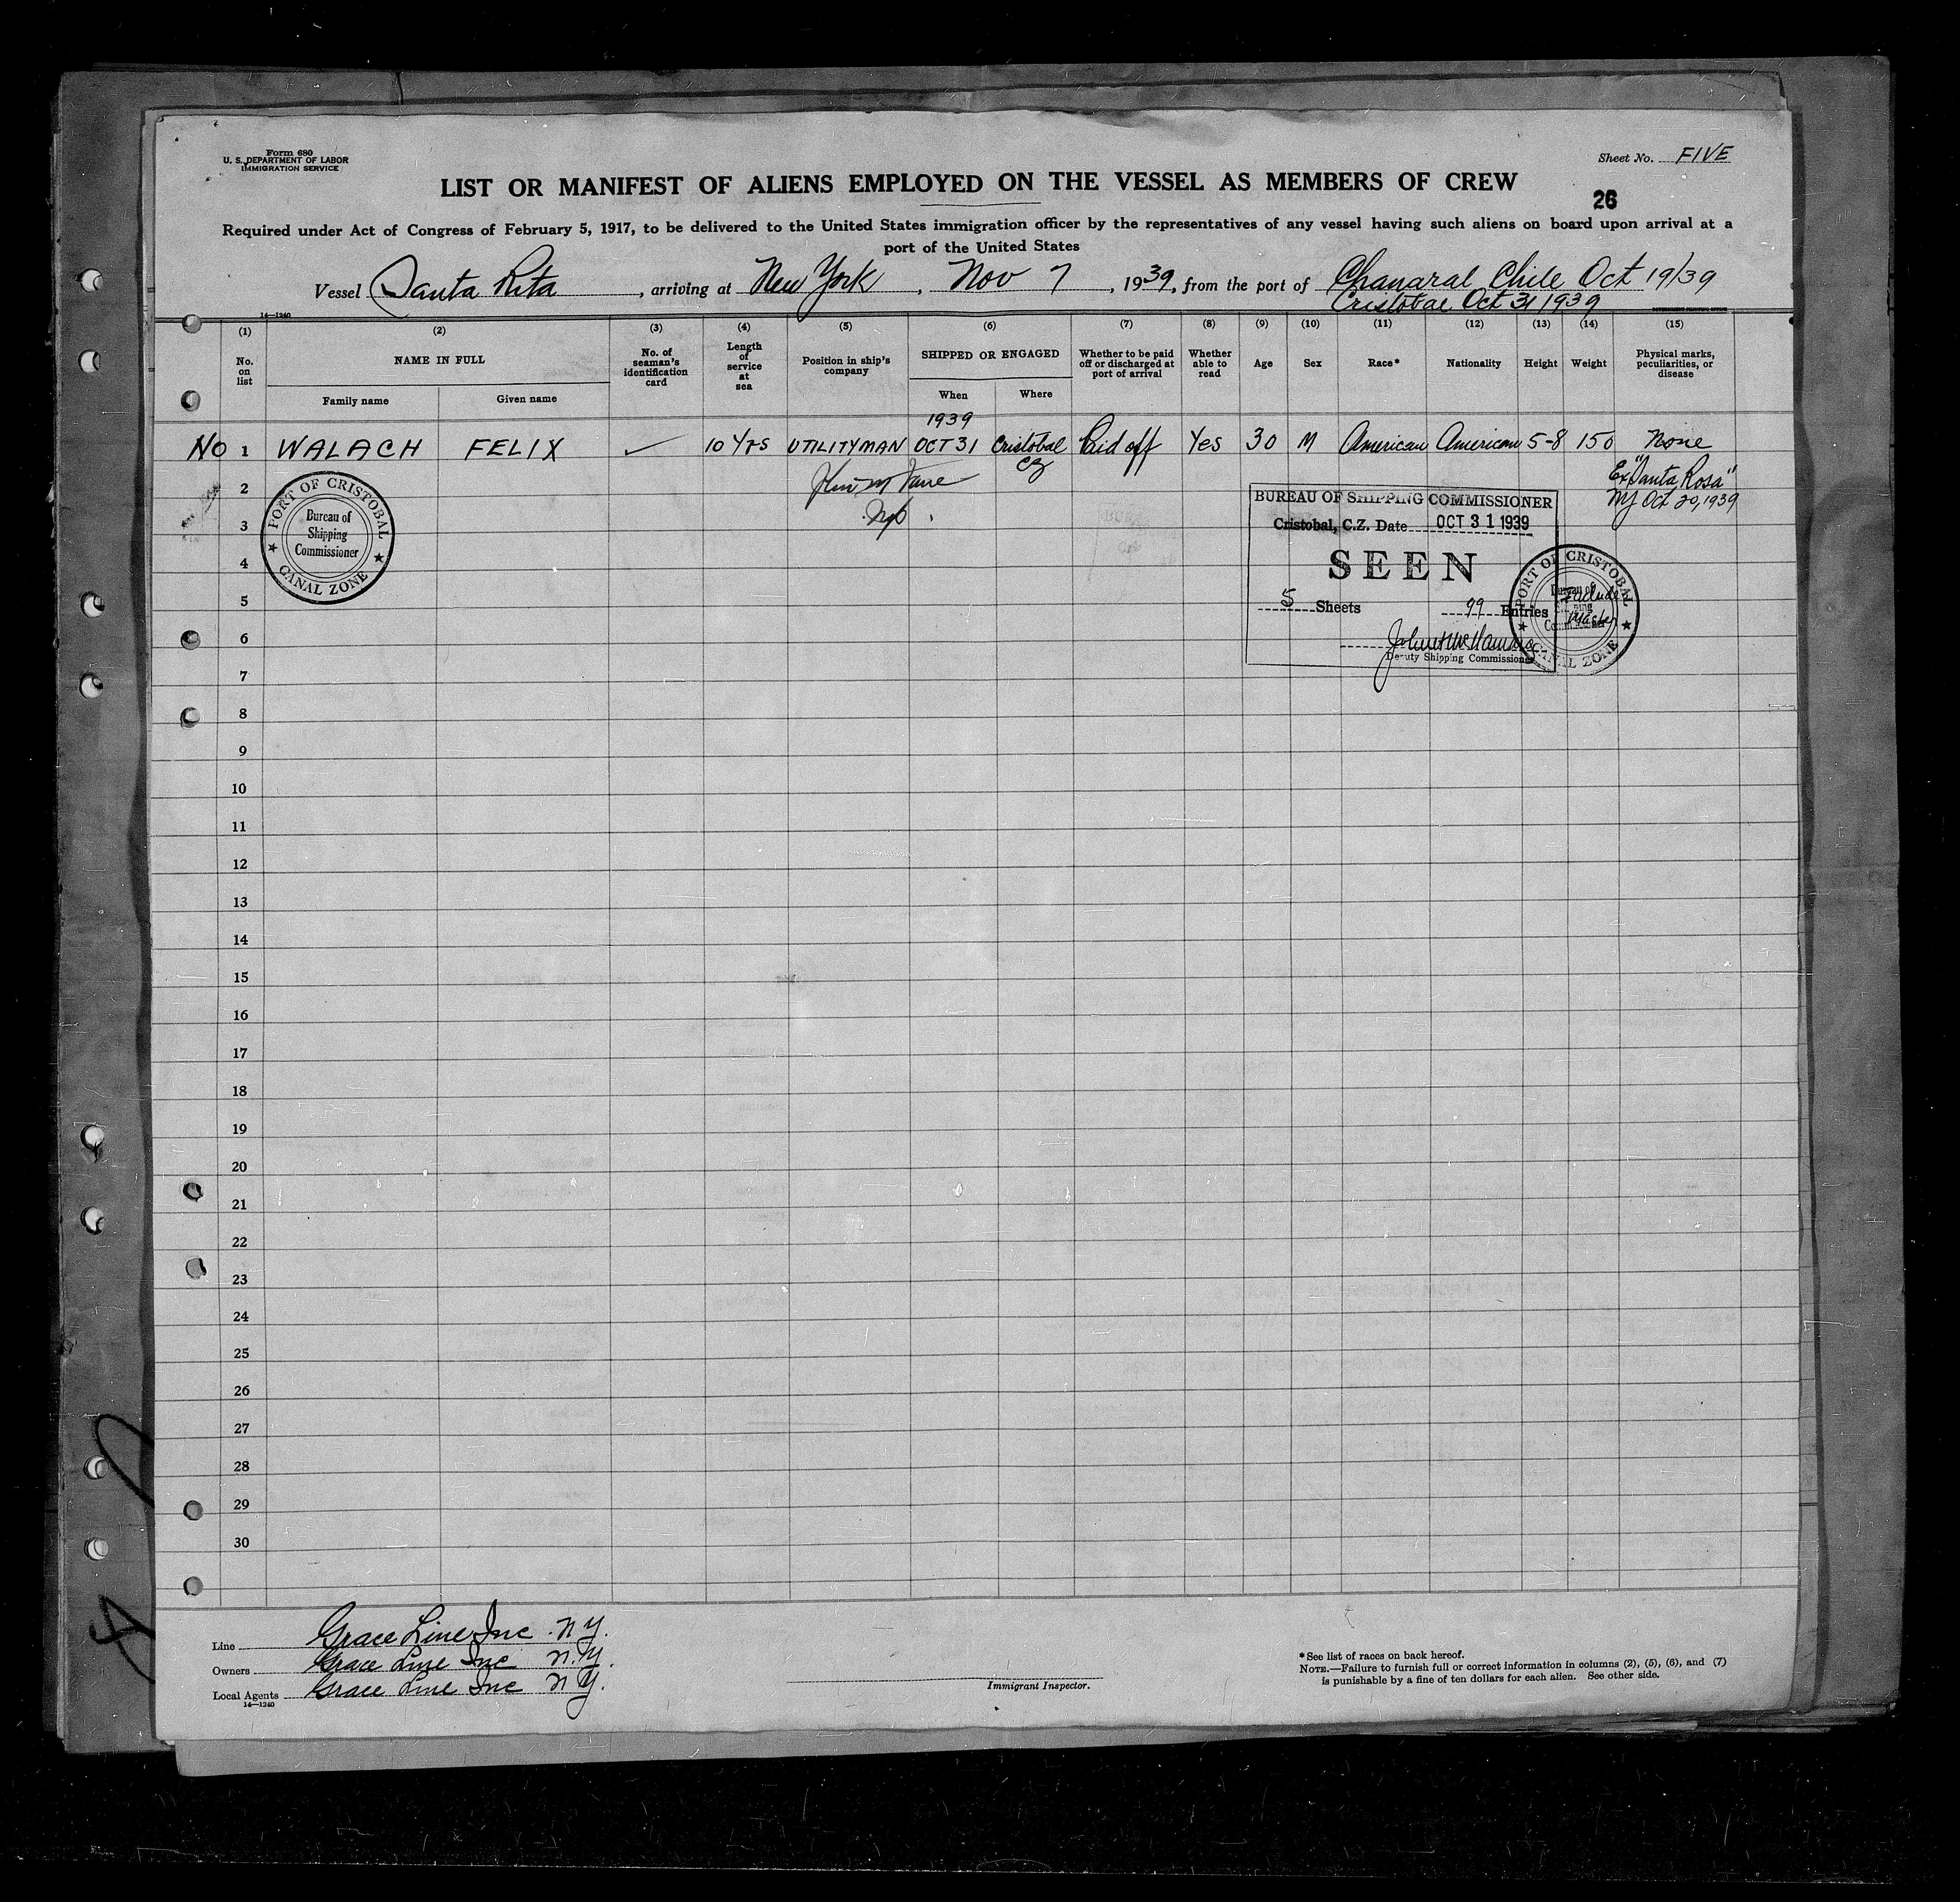 Form 680
U. S. DEPARTMENT OF LABOR
IMMIGRATION SERVICE
Sheet No. FIVE
LIST OR MANIFEST OF ALIENS EMPLOYED ON THE VESSEL AS MEMBERS OF CREW
26
Required under Act of Congress of February 5, 1917, to be delivered to the United States immigration officer by the representatives of any vessel having such aliens on board upon arrival at a
port of the United States
Vessel Santa Rita, arriving at New York, Nov 7, 1939, from the port of Chanaral Chile Oct 19/39
Cristobal Oct 31 1939
14—1240
(1) (2) (3) (4) (5) (6) (7) (8) (9) (10) (11) (12) (13) (14) (15)
No. on list
NAME IN FULL
Family name
Given name
No. of seaman's identification card
Length of service at sea
Position in ship's company
SHIPPED OR ENGAGED
When
Where
Whether to be paid off or discharged at port of arrival
Whether able to read
Age
Sex
Race*
Nationality
Height
Weight
Physical marks, peculiarities, or disease
1939
No 1 WALACH FELIX ✓ 10 Yrs UTILITYMAN OCT 31 Cristobal CZ Paid off Yes 30 M American American 5-8 150 None
Ex "Santa Rosa"
NY Oct 20, 1939
2
3
4
5
6
7
8
9
10
11
12
13
14
15
16
17
18
19
20
21
22
23
24
25
26
27
28
29
30
PORT OF CRISTOBAL
Bureau of
Shipping
Commissioner
CANAL ZONE
BUREAU OF SHIPPING COMMISSIONER
Cristobal, C.Z. Date OCT 31 1939
SEEN
5 Sheets 99 Entries
Deputy Shipping Commissioner
PORT OF CRISTOBAL
Bureau of
Shipping
Commissioner
CANAL ZONE
Master
Line Grace Line Inc. N.Y.
Owners Grace Line Inc N.Y.
Local Agents Grace Line Inc N.Y.
14—1240
Immigrant Inspector.
*See list of races on back hereof.
NOTE.—Failure to furnish full or correct information in columns (2), (5), (6), and (7)
is punishable by a fine of ten dollars for each alien. See other side.